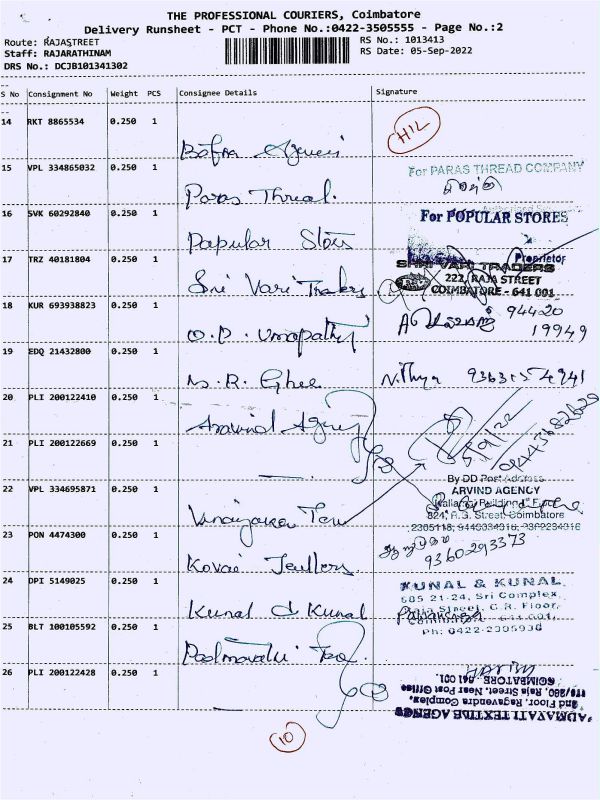 THE PROFESSIONAL COURIERS, Coimbatore
Delivery Runsheet - PCT - Phone No.:0422-3505555 - Page No.:2
Route: RAJASTREET
Staff: RAJARATHINAM
DRS No.: DCJB101341302
RS No.: 1013413
RS Date: 05-Sep-2022
S No Consignment No Weight PCS Consignee Details Signature
14 RKT 8865534 0.250 1
H12
15 VPL 334865032 0.250 1 Paras Thread.
For PARAS THREAD COMPANY
16 SVK 60292840 0.250 1 Papular Stores
For POPULAR STORES
Proprietor
17 TRZ 40181804 0.250 1 Sri Vari Traders
SHRI VARI TRADERS
222, RAJA STREET
COIMBATORE - 641 001
18 KUR 693938823 0.250 1 O.P. Umapathy
94420
19949
19 EDQ 21432800 0.250 1 N.R. Ghee
N.Thya 9363154941
20 PLI 200122410 0.250 1 Aravind Agency
5/9/22
21 PLI 200122669 0.250 1
By DD Post Address
ARVIND AGENCY
824, R.G. Street, Coimbatore
22 VPL 334695871 0.250 1 Vinayaka
23 PON 4474300 0.250 1 Kovai Jewllers
9360293373
24 DPI 5149025 0.250 1 Kunal & Kunal
KUNAL & KUNAL
585 21-24, Sri Complex,
Raja Street, C.R. Floor,
Coimbatore - 641 001.
Ph: 0422-2395938
25 BLT 100105592 0.250 1 Padmavathi Tex
26 PLI 200122428 0.250 1
COIMBATORE - 641 001.
Raja Street, Near Post Office
2nd Floor, Ragavendra Complex,
PADMAVATI TEXTILE AGENCY
10